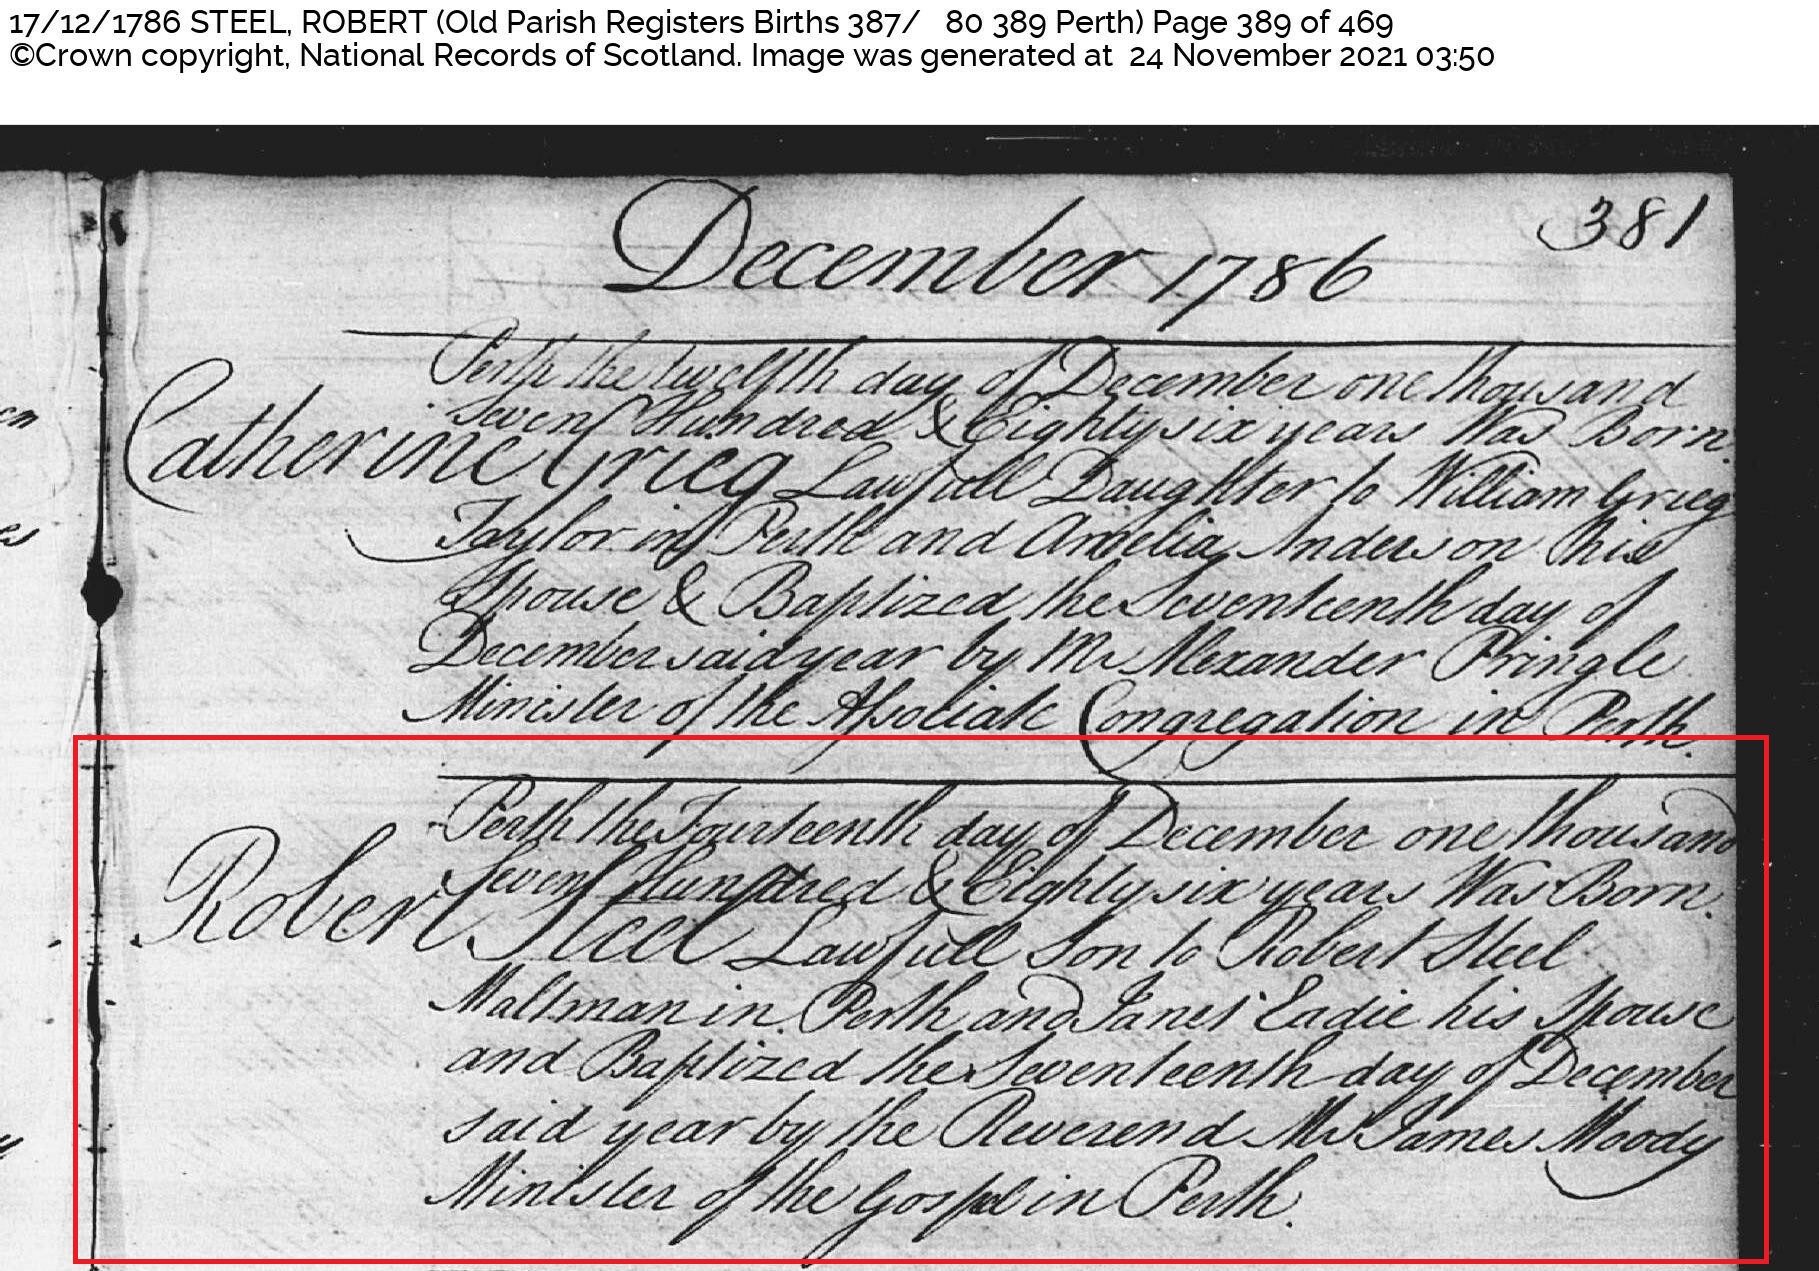 17/12/1786 STEEL, ROBERT (Old Parish Registers Births 387/ 80 389 Perth) Page 389 of 469
©Crown copyright, National Records of Scotland. Image was generated at 24 November 2021 03:50
381
December 1786
Perth the twelfth day of December one thousand
Seven Hundred & Eighty six years Was Born
Catherine Grieg Lawfull Daughter to William Grieg
Taylor in Perth and Amelia Anderson his
Spouse & Baptized the Seventeenth day of
December said year by Mr Alexander Pringle
Minister of the Associate Congregation in Perth.
Perth the Fourteenth day of December one thousand
Seven Hundred & Eighty six years Was Born.
Robert Steel Lawfull Son to Robert Steel
Maltman in Perth and Janet Eadie his Spouse
and Baptized the Seventeenth day of December
said year by the Reverend Mr James Moody
Minister of the Gospel in Perth.